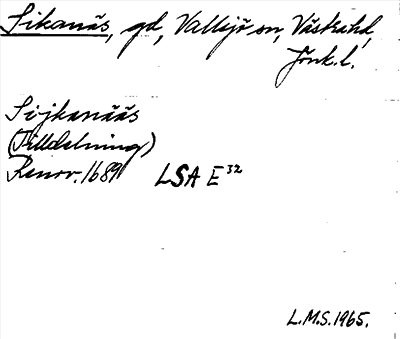 Sikanäs, gd, Vallsjö sn, Västra hd,
Jönk.l.
Sijkanääs
(Tilldelning)
Renov. 1689 LSA E 32
L.M.S. 1965.